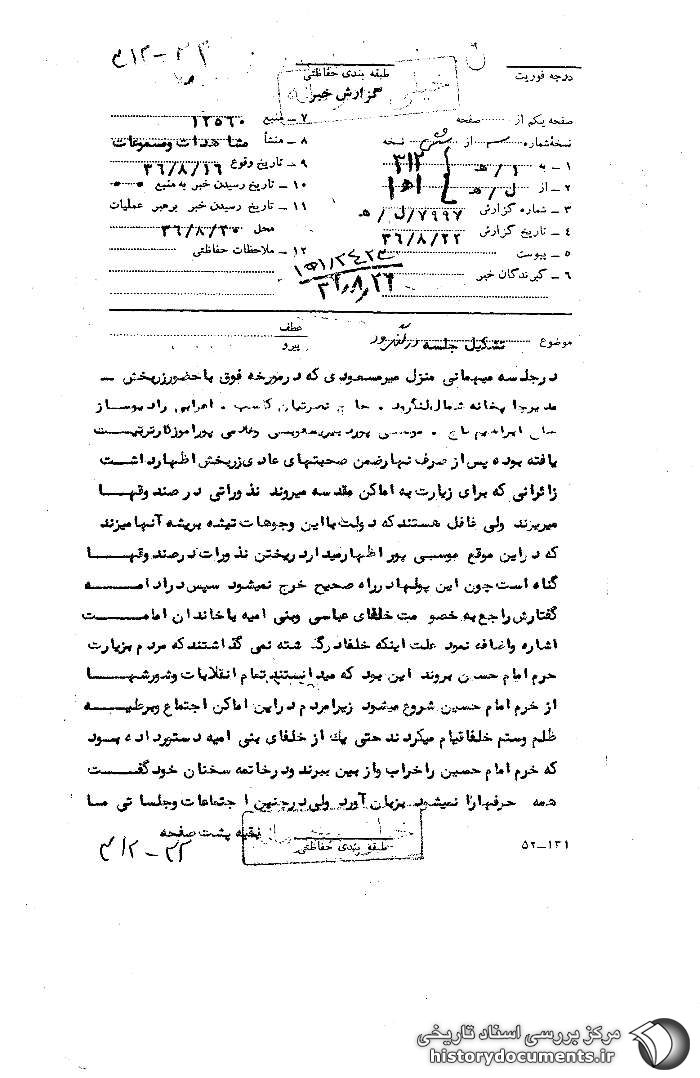 درجه فوریت
طبقه بندی حفاظتی
خیلی
گزارش خبر
صفحه یکم از صفحه
نسخه شماره از نسخه
۱ ـ به ۳۱۲
۲ ـ از ل/ه
۳ ـ شماره گزارش ۷۹۹۷/ل/ه
۴ ـ تاریخ گزارش ۳۶/۸/۲۲
۵ ـ پیوست
۶ ـ گیرندگان خبر
۷ ـ منبع ۱۲۵۶۰
۸ ـ منشأ مشاهدات و مسموعات
۹ ـ تاریخ وقوع ۳۶/۸/۱۶
۱۰ ـ تاریخ رسیدن خبر به منبع
۱۱ ـ تاریخ رسیدن خبر برهبر عملیات
محل ۳۶/۸/۲۰
۱۲ ـ ملاحظات حفاظتی
موضوع تشکیل جلسه در لنگرود
عطف
پیرو
درجلسه میهمانی منزل میرمسعودی که درمورخه فوق باحضورزربخش ـ
مدیرچاپخانه شمال لنگرود ـ حاج نصرتیان کاسب ـ اعرابی رادیوساز
ابراهیم تاج ـ موسسی پور دبیر آموزگار تربیت
یافته بوده پس از صرف نهارضمن صحبتهای عادی زربخش اظهارداشت
زائرانی که برای زیارت به اماکن مقدسه میروند نذوراتی در صندوقها
میریزند ولی غافل هستندکه دولت بااین وجوهات تیشه بریشه آنها میزند
که دراین موقع موسسی پور اظهارمیدارد ریختن نذورات درصندوقها
گناه است چون این پولها درراه صحیح خرج نمیشود سپس درادامه
گفتارش راجع به خصومت خلفای عباسی وبنی امیه باخاندان امامت
اشاره واضافه نمود علت اینکه خلفادرگذشته نمی گذاشتندکه مردم بزیارت
حرم امام حسین بروند این بود که میدانستند تمام انقلابات وشورشها
از خرم امام حسین شروع میشود زیرامردم دراین اماکن اجتماع وبرعلیه
ظلم وستم خلفاقیام میکردند حتی یك از خلفای بنی امیه دستورداده بود
که خرم امام حسین را خراب واز بین ببرند ودرخاتمه سخنان خود گفت
همه حرفهارا نمیشود بزبان آورد ولی درچنین اجتماعات وجلساتی ما
بقیه پشت صفحه
طبقه بندی حفاظتی
۵۲ـ۱۳۱
مرکز بررسی اسناد تاریخی
historydocuments.ir